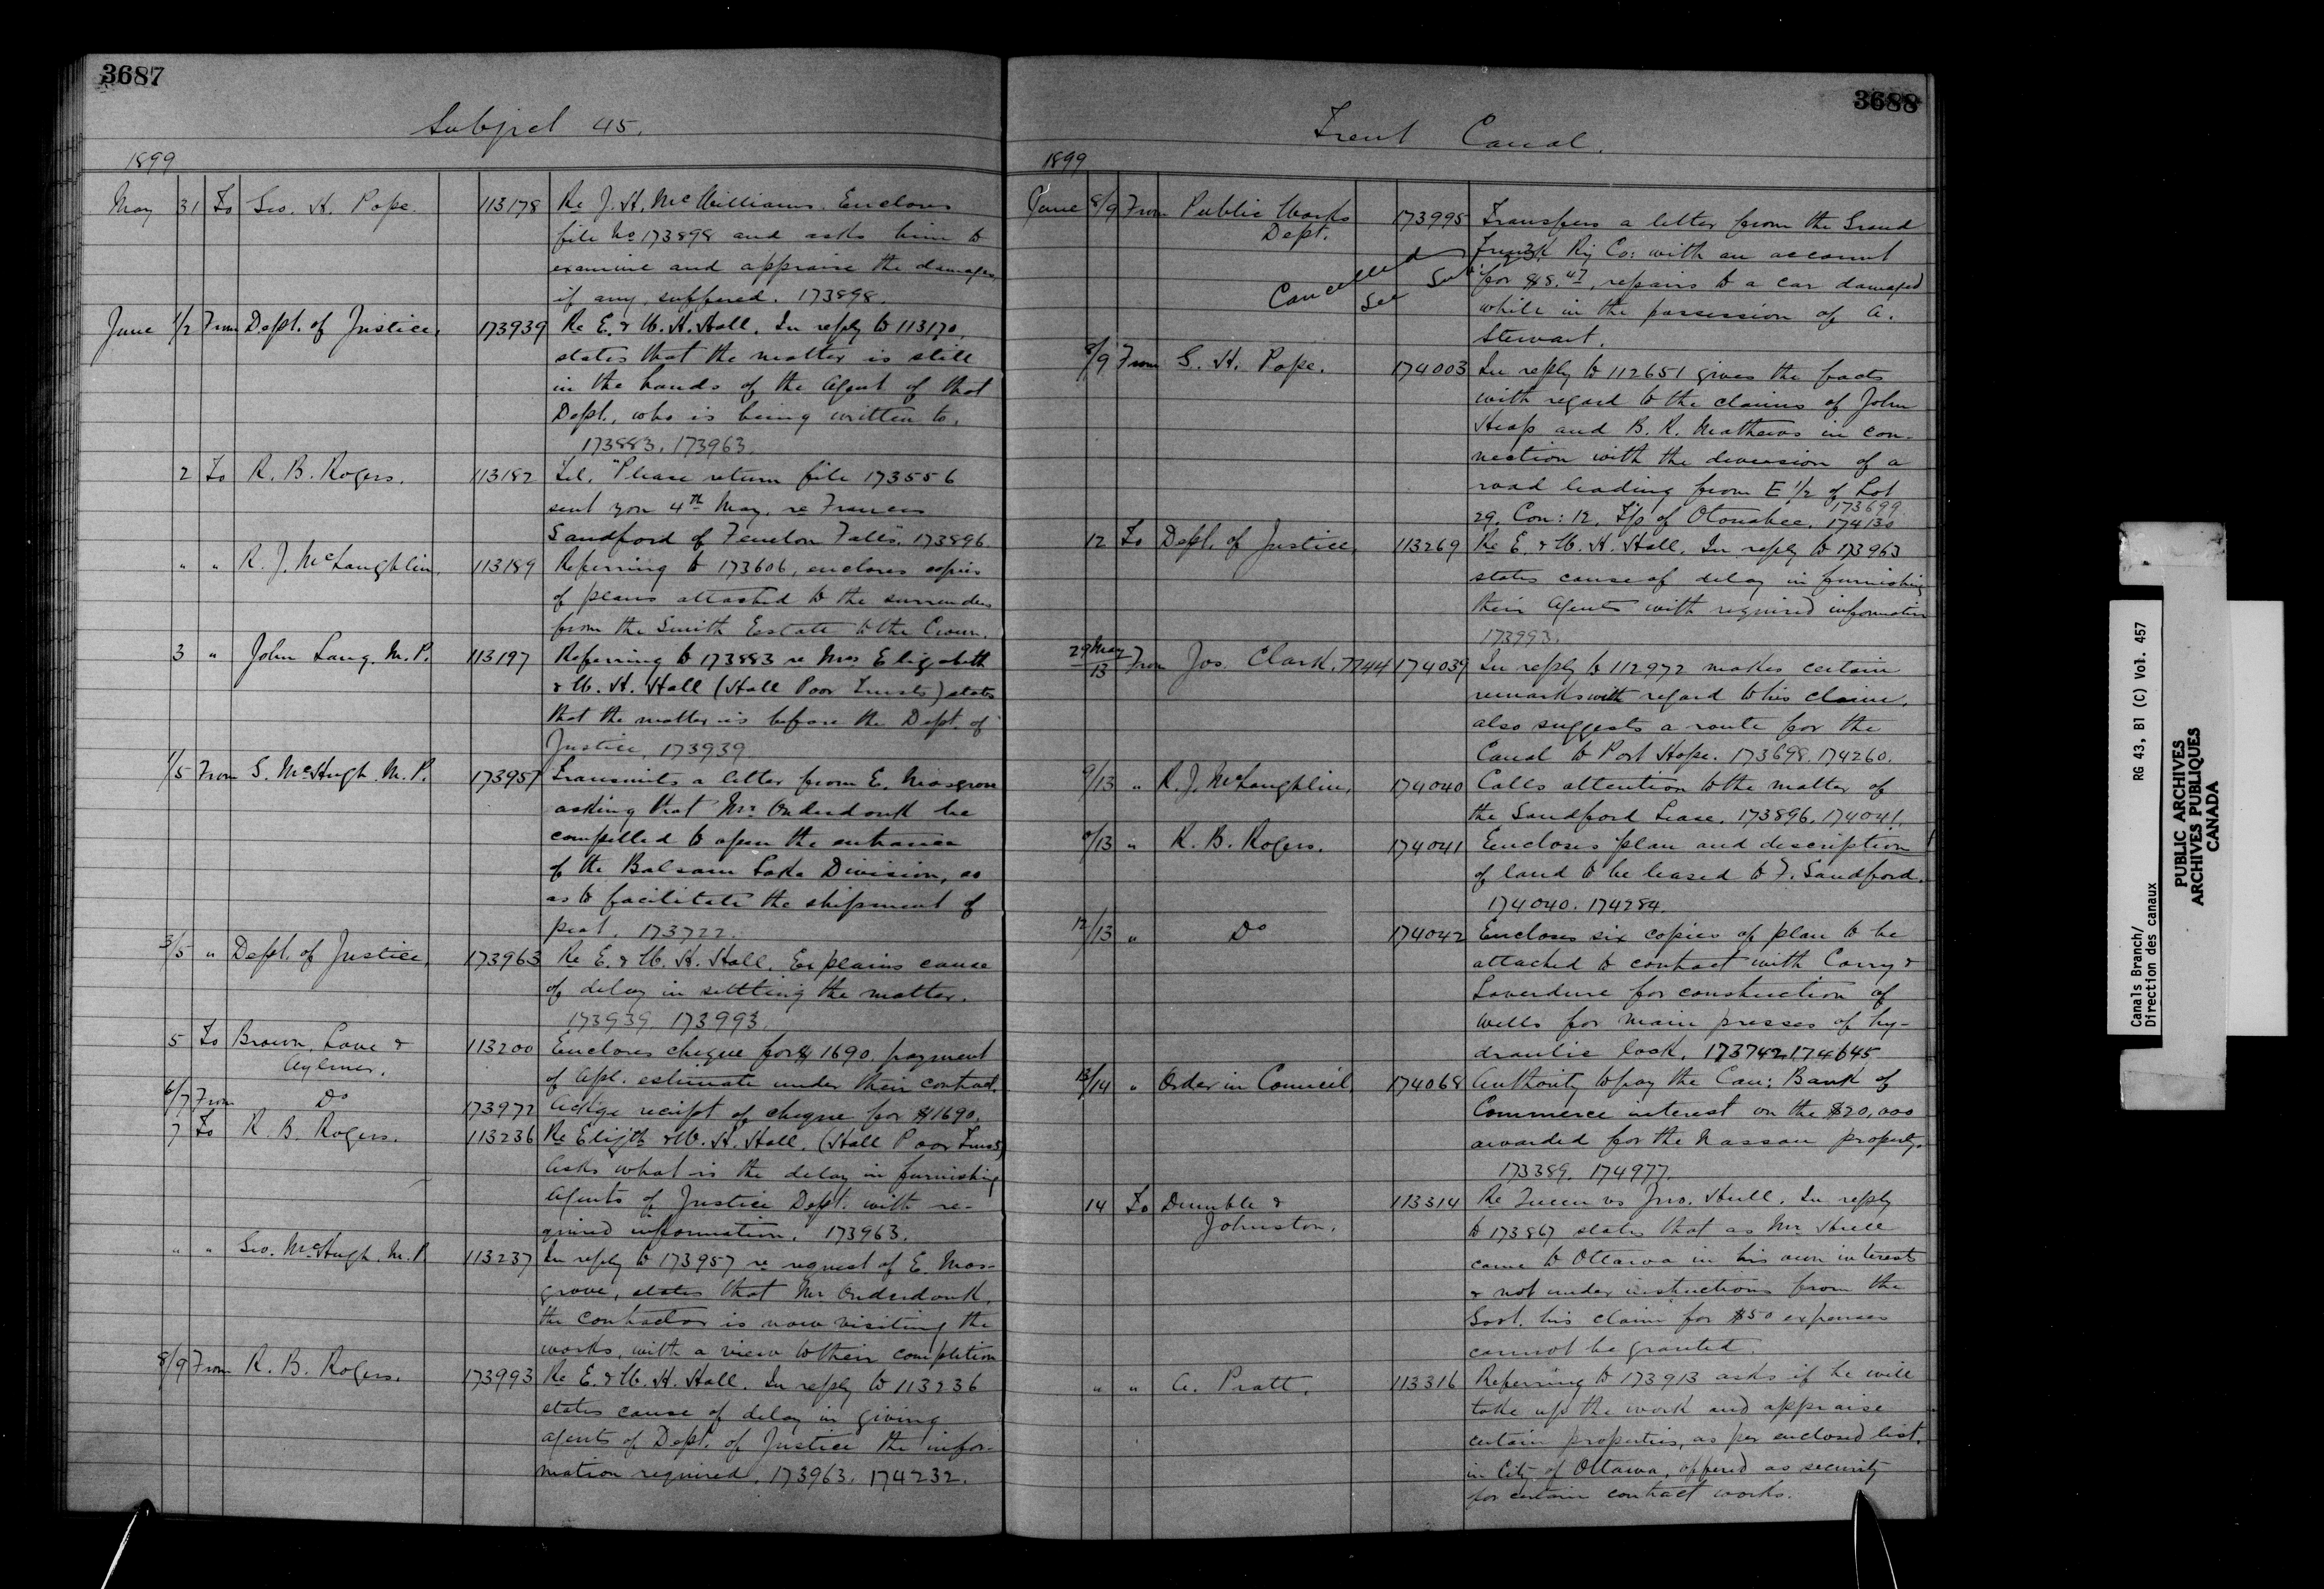 3687
Subject 45.
1899
May 31 To Geo. H. Pope. 113178 Re J. H. McWilliams. Encloses
file No 173898 and asks him to
examine and appraise the damages
if any, suffered. 173898.
June 1/2 From Dept. of Justice. 173939 Re E. & W. H. Hall. In reply to 113170
states that the matter is still
in the hands of the Agent of that
Dept., who is being written to.
173883. 173963.
2 To R. B. Rogers. 113182 Tel. "Please return file 173556
sent you 4th May. re Frances
Sandford of Fenelon Falls". 173896.
" " R. J. McLaughlin. 113189 Referring to 173606, encloses copies
of plans attached to the surrender
from the Smith Estate to the Crown.
3 " John Lang. M. P. 113197 Referring to 173883 re Mrs Elizabeth
& W. H. Hall (Hall Poor Trusts) states
that the matter is before the Dept. of
Justice. 173939
1/5 From G. McHugh. M. P. 173957 Transmits a letter from E. Mosgrove
asking that Mr. Onderdonk be
compelled to open the entrance
of the Balsam Lake Division, so
as to facilitate the shipment of
peat. 173722.
3/5 " Dept. of Justice. 173963 Re E. & W. H. Hall. Explains cause
of delay in settling the matter.
173939 173993.
5 To Brown, Love & 113200 Encloses cheque for $1690. payment
Aylmer. of Apl. estimate under their contract.
6/7 From Do 173972 Ackge receipt of cheque for $1690.
7 To R. B. Rogers. 113236 Re Elizth & W. H. Hall. (Hall Poor Trusts)
Asks what is the delay in furnishing
Agents of Justice Dept. with re-
quired information. 173963.
" " Geo. McHugh. M. P. 113237 In reply to 173957 re request of E. Mos-
grove, states that Mr Onderdonk,
the contractor is now visiting the
works, with a view to their completion
8/9 From R. B. Rogers. 173993 Re E. & W. H. Hall. In reply to 113236
states cause of delay in giving
agents of Dept. of Justice the infor-
mation required. 173963. 174232.
3688
Trent Canal.
1899
June 8/9 From Public Works 173995 Transfers a letter from the Grand
Dept. Trunk Ry Co: with an account
Cancelled See Sub for $8.47, repairs to a car damaged
while in the possession of A.
Stewart.
8/9 From G. H. Pope. 174003 In reply to 112651 gives the facts
with regard to the claims of John
Heap and B. R. Mathews in con-
nection with the diversion of a
road leading from E 1/2 of Lot
173699
29. Con: 12. T/p of Otonabee. 174130
12 To Dept. of Justice. 113269 Re E. & W. H. Hall. In reply to 173963
states cause of delay in furnishing
their Agents with required information
173993.
29 May/13 From Jos. Clark. 7744 174039 In reply to 112972 makes certain
remarks with regard to his claim.
also suggests a route for the
Canal to Port Hope. 173698. 174260.
9/13 " R. J. McLaughlin. 174040 Calls attention to the matter of
the Sandford Lease. 173896. 174041.
9/13 " R. B. Rogers. 174041 Encloses plan and description
of land to be leased to F. Sandford.
174040. 174284.
12/13 " Do 174042 Encloses six copies of plan to be
attached to contract with Corry &
Laverdure for construction of
wells for main presses of hy-
draulic lock. 173742. 174645
13/14 " Order in Council. 174068 Authority to pay the Can: Bank of
Commerce interest on the $20,000
awarded for the Nassau property.
173389. 174977.
14 To Dumble & 113314 Re Queen vs Jno. Hull. In reply
Johnston. to 173867 states that as Mr Hull
came to Ottawa in his own interests
& not under instructions from the
Govt. his claim for $50 expenses
cannot be granted.
" " A. Pratt. 113316 Referring to 173913 asks if he will
take up the work and appraise
certain properties, as per enclosed list,
in City of Ottawa, offered as security
for certain contract works.
Canals Branch/ RG 43, B1 (C) Vol. 457
Direction des canaux
PUBLIC ARCHIVES
ARCHIVES PUBLIQUES
CANADA